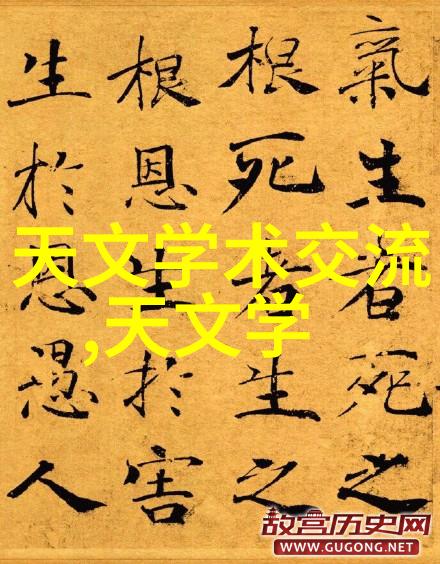 氣生者死之
根死者生之
根恩生於害
生於恩愚人
天文学术交流
,天文学
故宫历史网
WWW.GUGONG.NET